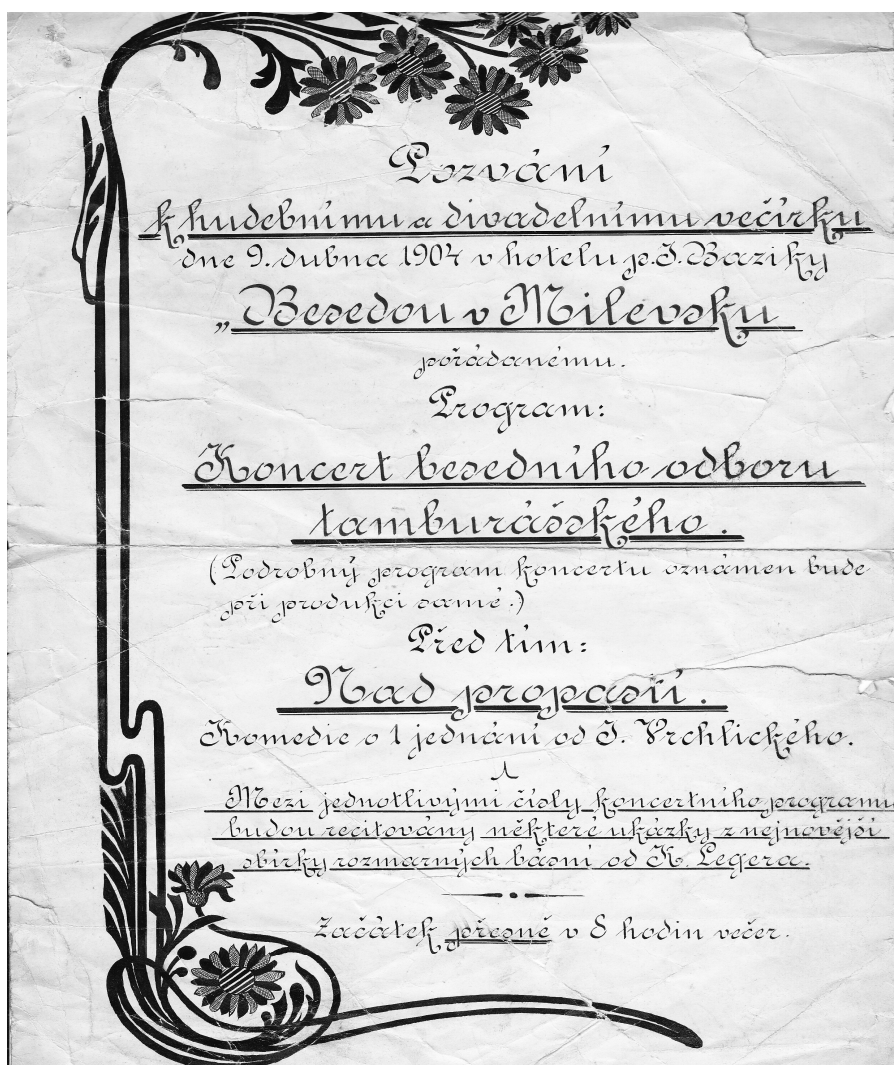 Pozvání
k hudebnímu a divadelnímu večírku
dne 9. dubna 1904 v hotelu p. J. Baziky
„Besedou v Milevsku
pořádanému.
Program:
Koncert besedního odboru
tamburášského.
(Podrobný program koncertu oznámen bude
při produkci samé.)
Před tím:
Nad propastí.
Komedie o 1 jednání od J. Vrchlického.
Mezi jednotlivými čísly koncertního programu
budou recitovány některé ukázky z nejnovější
sbírky rozmarných básní od K. Legera.
Začátek přesně v 8 hodin večer.